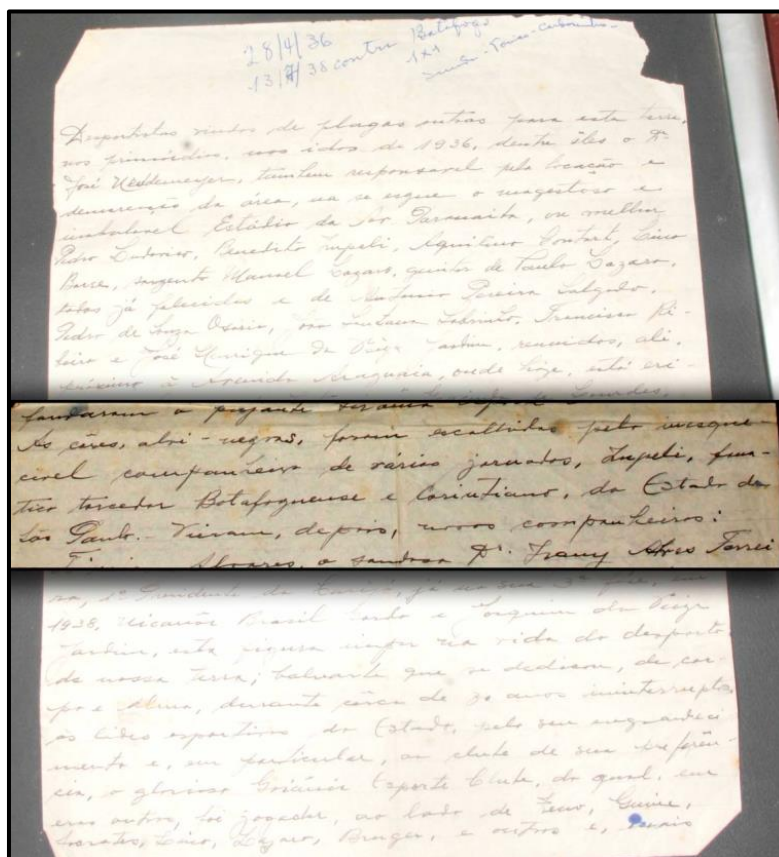 28/4/36
13/7/38 contra Botafogo
1x1
Desportistas vindos de plagas outras para esta terra,
nos primórdios, nos idos de 1936, dentre êles o Dr
José Neddemeyer, tambem responsavel pela locação e
demarcação da área, em se ergue o magestoso e
Estádio da Paranaiba, ou melhor,
Pedro Ludovico, Benedito Zupeli, Aquilino, Lino
Barre, sargento Manoel Lazaro, genitor de Paulo Lazaro,
todos já falecidos e de Antonio Pereira Salgado,
Pedro de Souza Osorio, João, Francisco Ri-
beiro e José Henrique da Veiga Jardim, reunidos, ali,
próximo à Avenida Araguaia, onde hoje, está eri-
fundaram o pujante
As côres, alvi-negras, foram escolhidas pelo inesque-
civel companheiro de várias jornadas, Zupeli, faná-
tico torcedor Botafoguense e Corintiano, do Estado de
São Paulo. Vieram, depois, novos companheiros:
Alvares, o saudoso Dr. Irany Alves Ferrei
ra, 1º Presidente da, já na sua 3ª fase, em
1938, Nicanor Brasil Gordo e Joaquim da Veiga
Jardim, esta figura impar na vida do desporto
de nossa terra; baluarte que se dedicou, de cor-
po e alma, durante cêrca de 30 anos ininterruptos,
às lides esportivas do Estado, pelo seu engrandeci
mento e, em particular, ao clube de sua preferên-
cia, o glorioso Goiânia Esporte Clube, do qual, em
eras outras, foi jogador, ao lado de
Socrates, Lino, Lazaro, e outros e, mais